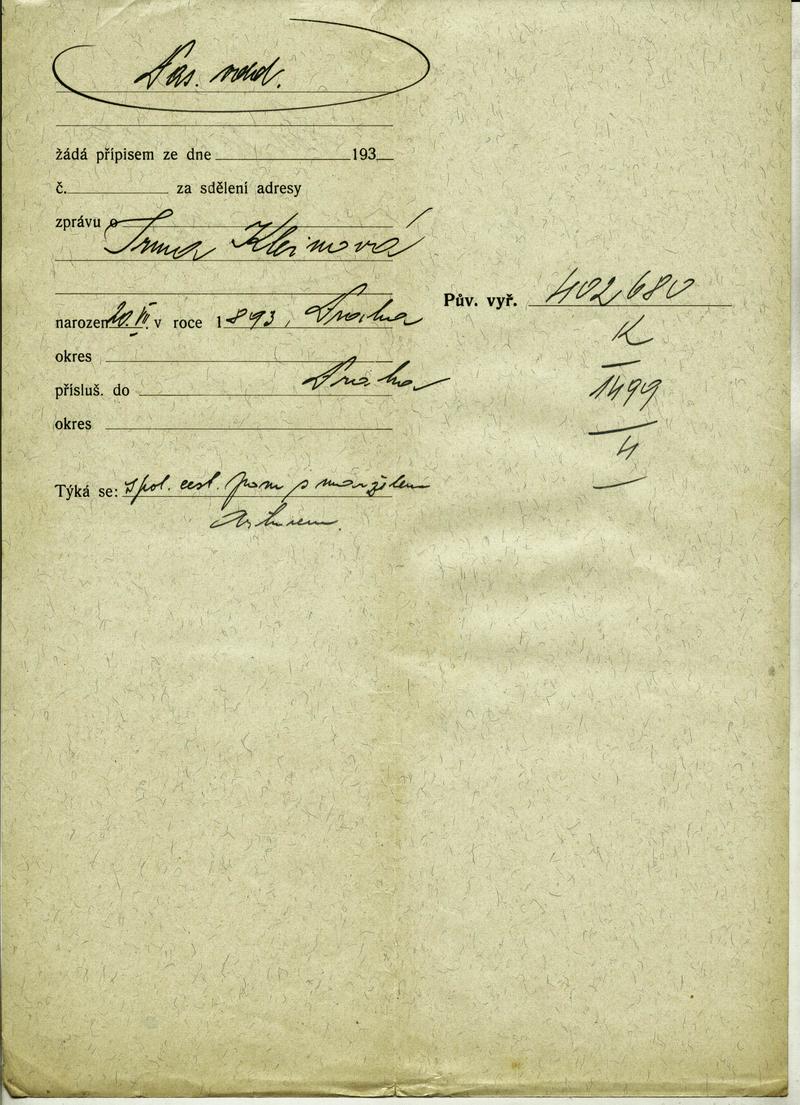 Pas. odd.
žádá přípisem ze dne 193
č. za sdělení adresy
zprávu o
Irma Kleinová
Pův. vyř. 402680
K
1499
4
narozen 20. VI. v roce 1893, Praha
okres
přísluš. do Praha
okres
Týká se: spol. cest. pasu s manželem
Arturem.